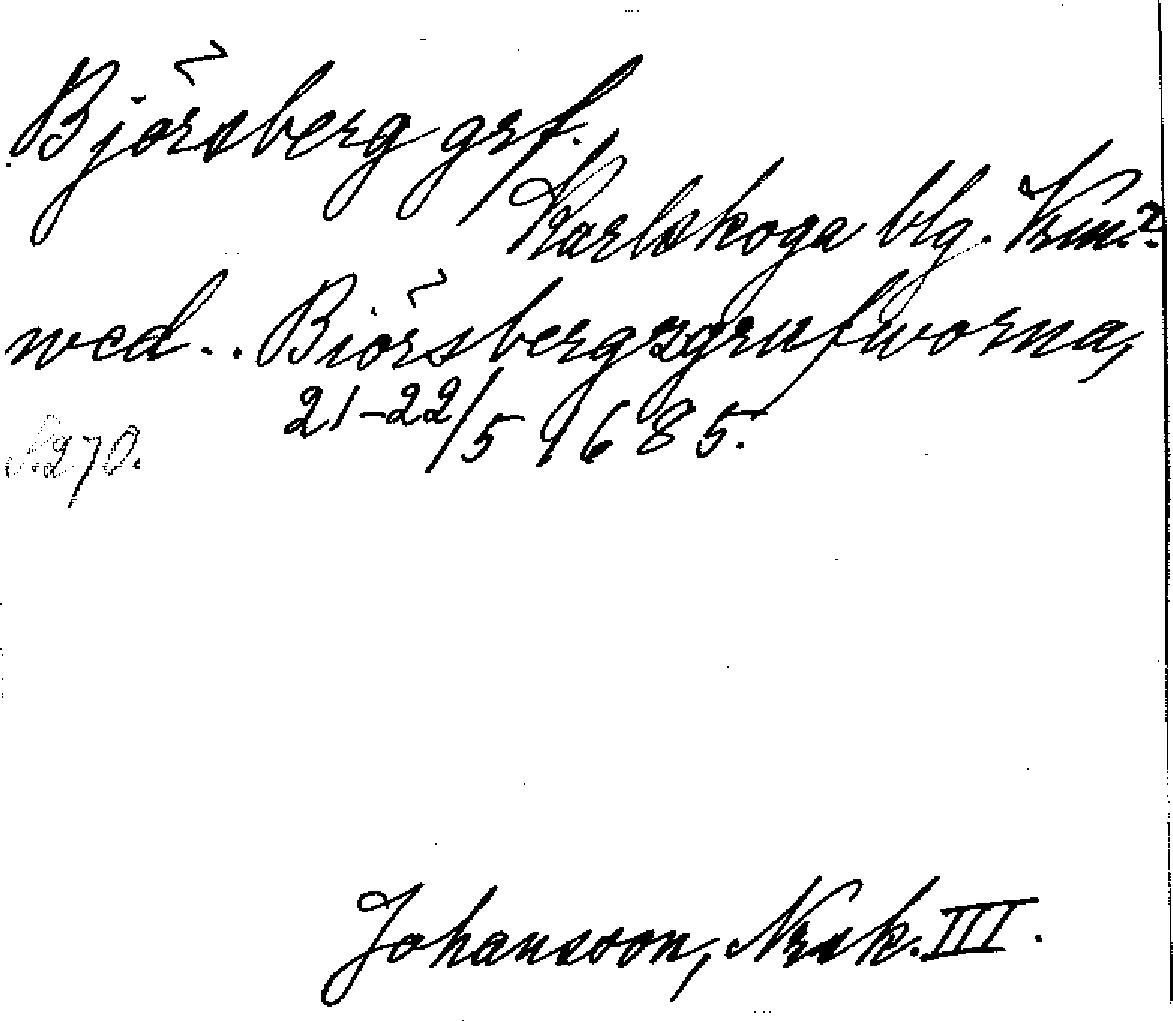 Björsberg grf.
Karlskoga blg. Vrml.?
wed.. Biörsbergzgrufworna,
21-22/5 1685.
S. 270.
Johansson, Nrsk. III.